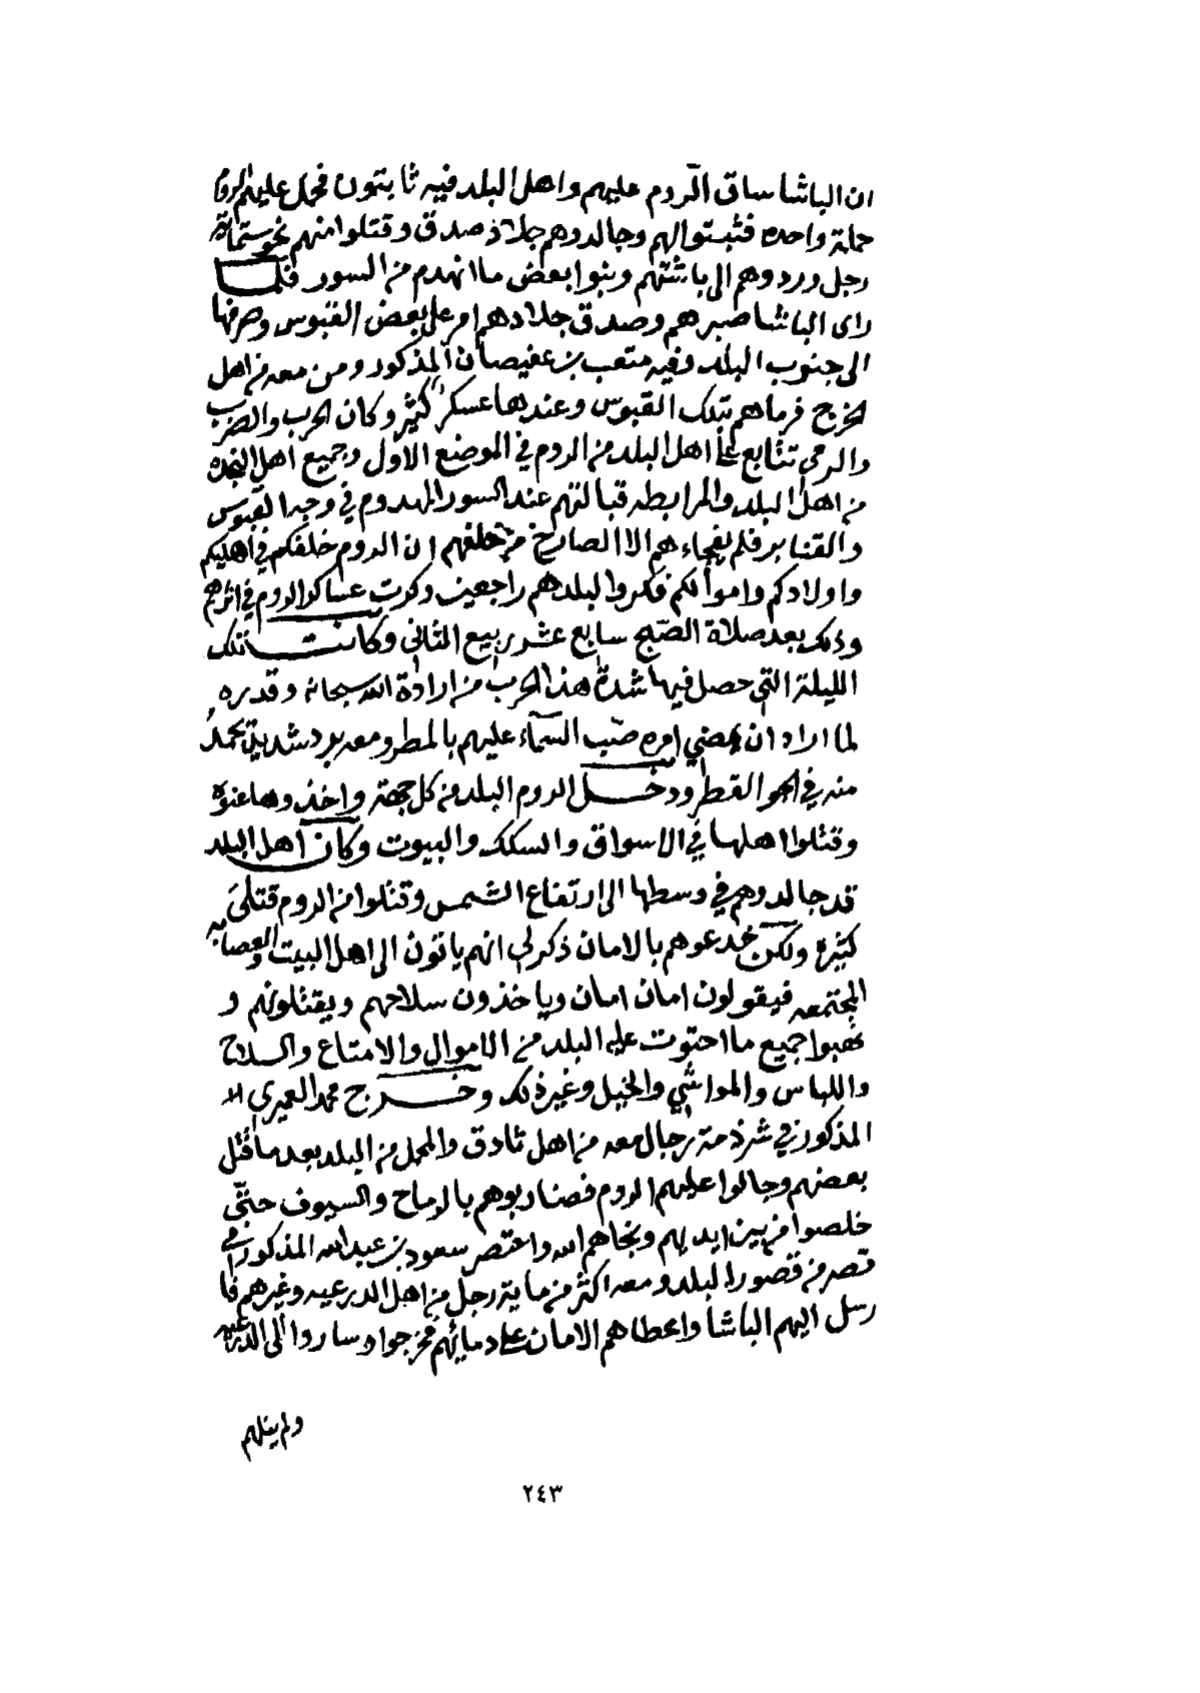 ان الباشا ساق الروم عليهم واهل البلد فيه ثابتون فحمل عليهم الروم
حملة واحده فثبتوا لهم وجالدوهم جلاد صدق وقتلوا منهم نحو ستماية
رجل وردوهم الى باشتهم وبنوا بعض ما انهدم من السور فلما
راى الباشا صبرهم وصدق جلادهم امر على بعض القبوس وصرفها
الى جنوب البلد وفيه متعب بن عفيصان المذكور ومن معه من اهل
الخرج فرماهم بتلك القبوس وعندها عسكر كثير وكان الحرب والضرب
والرمي تتابع على اهل البلد من الروم في الموضع الاول وجميع اهل النجده
من اهل البلد والمرابطه قبالتهم عند السور المهدوم في وجه القبوس
والقنابر فلم يفجاءهم الا الصارخ من خلفهم ان الروم خلفكم في اهليكم
واولادكم واموالكم فكروا لبلدهم راجعين وكرت عساكر الروم في اثرهم
وذلك بعد صلاة الصبح سابع عشر ربيع الثاني وكانت تلك
الليلة التي حصل فيها شدة هذا الحرب من ارادة الله سبحانه وقدره
لما اراد ان يمضي امره صبّ السماء عليهم بالمطر ومعه برد شديد يجمد
منه في الجو القطر ودخل الروم البلد من كل جهة واخذوها عنوة
وقتلوا اهلها في الاسواق والسكك والبيوت وكان اهل البلد
قد جالدوهم في وسطها الى ارتفاع الشمس وقتلوا من الروم قتلى
كثيرة ولكن خدعوهم بالامان ذكر لي انهم ياتون الى اهل البيت والعصابه
المجتمعه فيقولون امان امان وياخذون سلاحهم ويقتلونهم و
نهبوا جميع ما احتوت عليه البلد من الاموال والامتاع والسلاح
واللباس والمواشي والخيل وغير ذلك وخرج محمد العميري
المذكور في شرذمة رجال معه من اهل ثادق والمحمل من البلد بعد ما قتل
بعضهم وجالوا عليهم الروم فضاربوهم بالرماح والسيوف حتى
خلصوا من بين ايديهم ونجاهم الله واعتصر سعود بن عبدالله المذكور في
قصر من قصور البلد ومعه اكثر من ماية رجل من اهل الدرعيه وغيرهم فا
رسل اليهم الباشا واعطاهم الامان على دمائهم فخرجوا وساروا الى الدرعيه
ولم ينلهم
٢٤٣